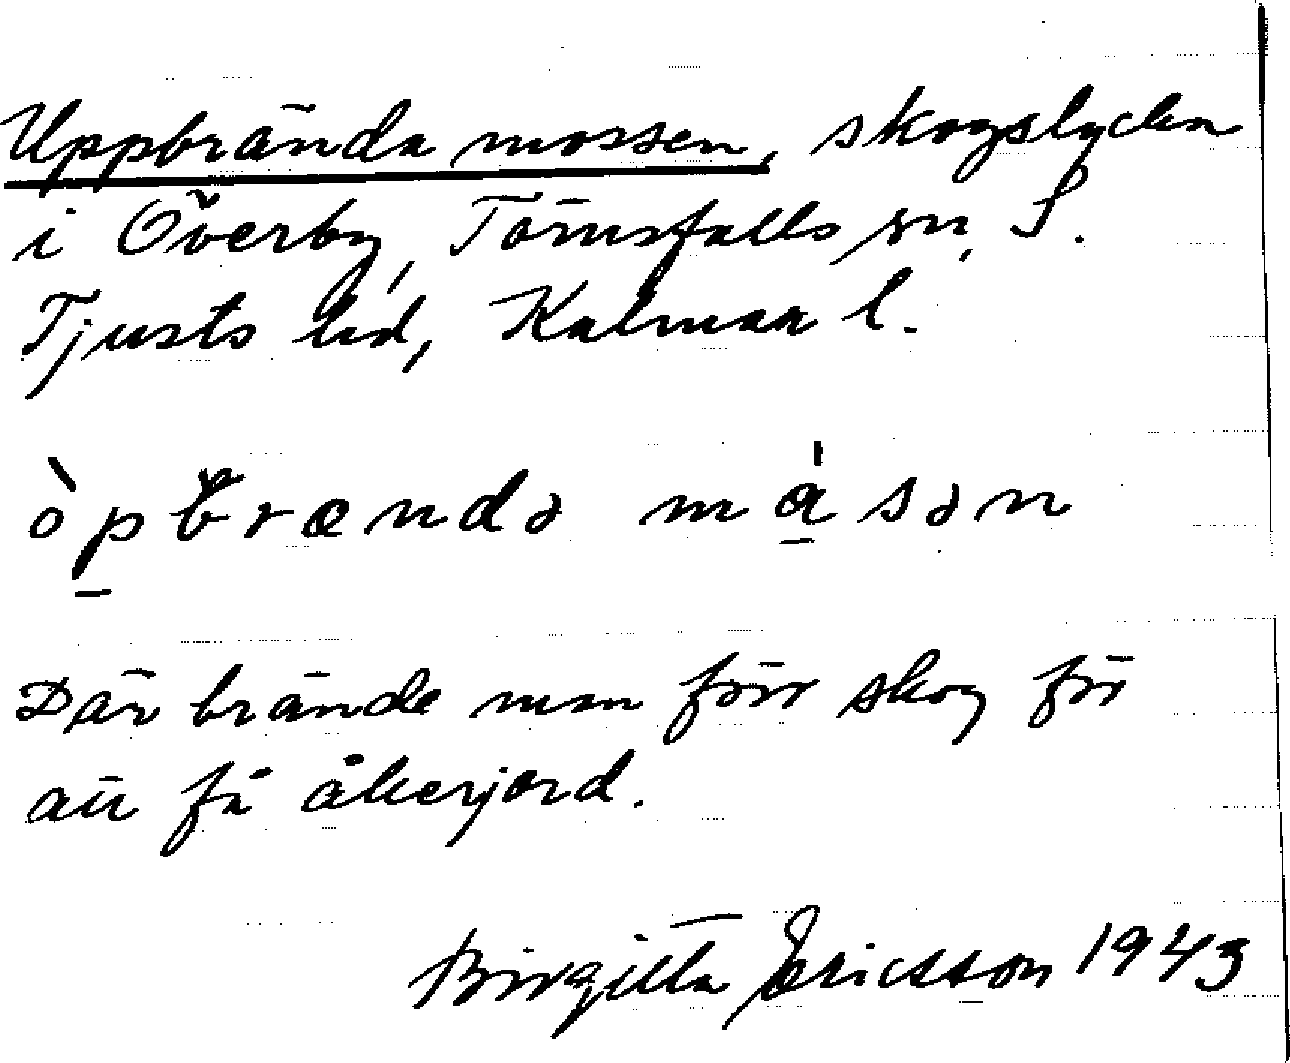 Uppbrända mossen, skogslycka
i Överby, Törnsfalls sn, S.
Tjusts hd, Kalmar l.
òpbrændə må̀sən
Där brände man förr skog för
att få åkerjord.
Birgitta Ericsson 1943